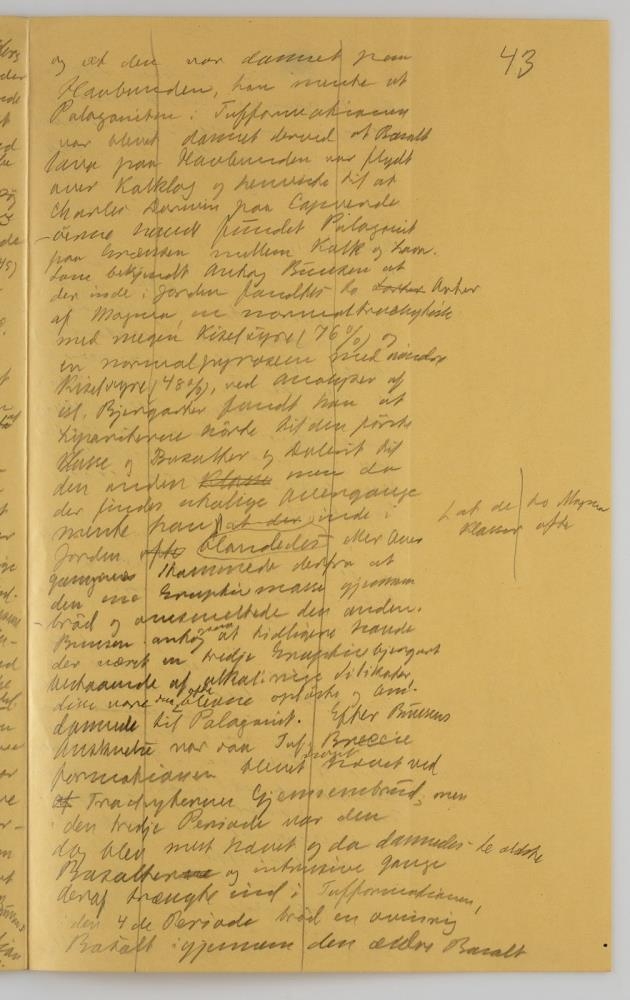 43
og at den var dannet paa
Havbunden, han mente at
Palagoniten i Tufformationen
var blevet dannet derved at Basalt
lava paa Havbunden var flydt
over Kalklag og henviste til at
Charles Darwin paa Capverde
-öerne havde fundet Palagonit
paa Grændsen mellem Kalk og Lava.
Som bekjendt antog Bunsen at
der inde i Jorden fandtes to Arter
af Magma, en normaltrachytisk
med megen Kiselsyre (76%) og
en normalpyroxen med mindre
Kiselsyre (48%), ved Analyser af
isl. Bjergarter fandt han at
Lipariterne hörte til den förste
Klasse og Basalter og Dolerit til
den anden Klasse men da
der findes utalige Overgange
mente han at der inde i
at de to Magma
Klasser ofte
Jorden ofte blandedes eller Over
gangene stammede derfra at
den ene Eruptivmasse gjennem
-bröd og omsmeltede den anden.
Bunsen antog at tidligere havde
der været en tredje Eruptiv bjergart
bestaaende af alkalirige Silikater,
disse vare blevne oplöste og om-
dannede til Palagonit. Efter Bunsens
Anskuelse var saa Tuf og Breccie
formationen blevet hævet ved
af Trachyternes Gjennembrud, men
i den tredje Periode var den
dog blev mest hævet og da dannedes de ældste
Basalter og intrusive Gange
deraf trængte ind i Tufformationen,
i den 4de Periode bröd en
Basalt igjennem den ældre Basalt